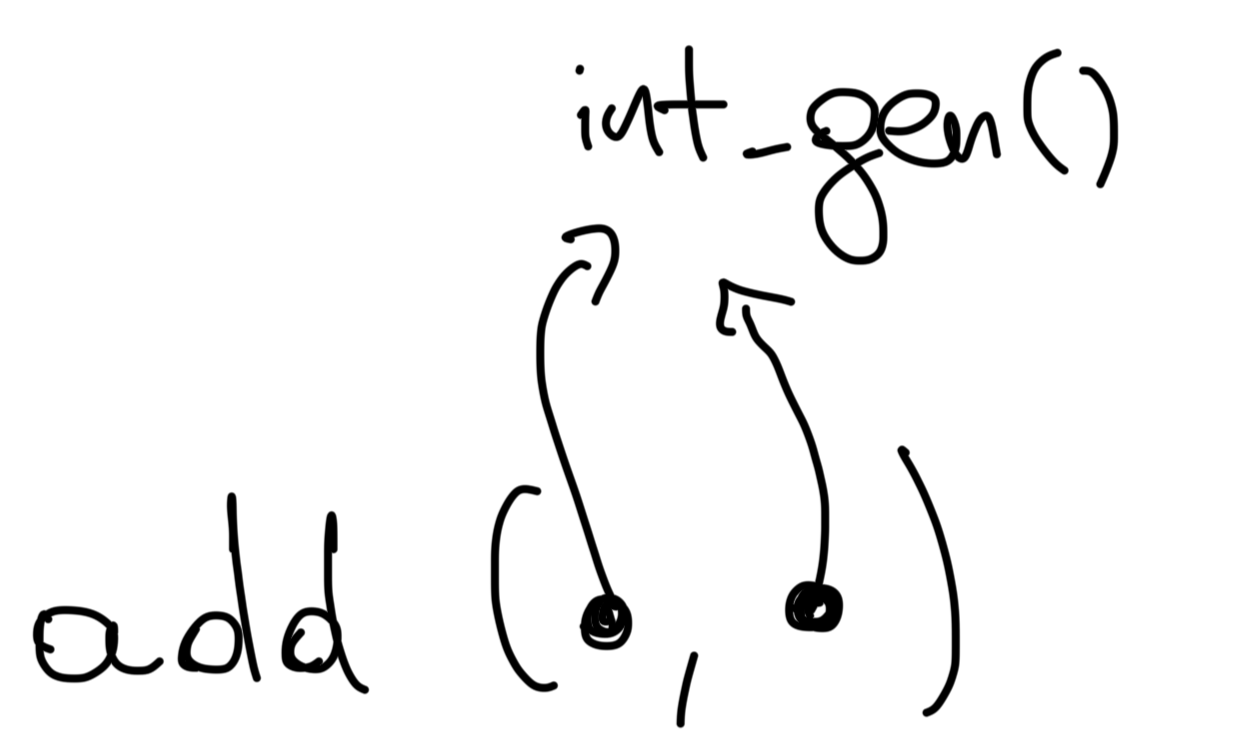 int_gen()
add ( , )